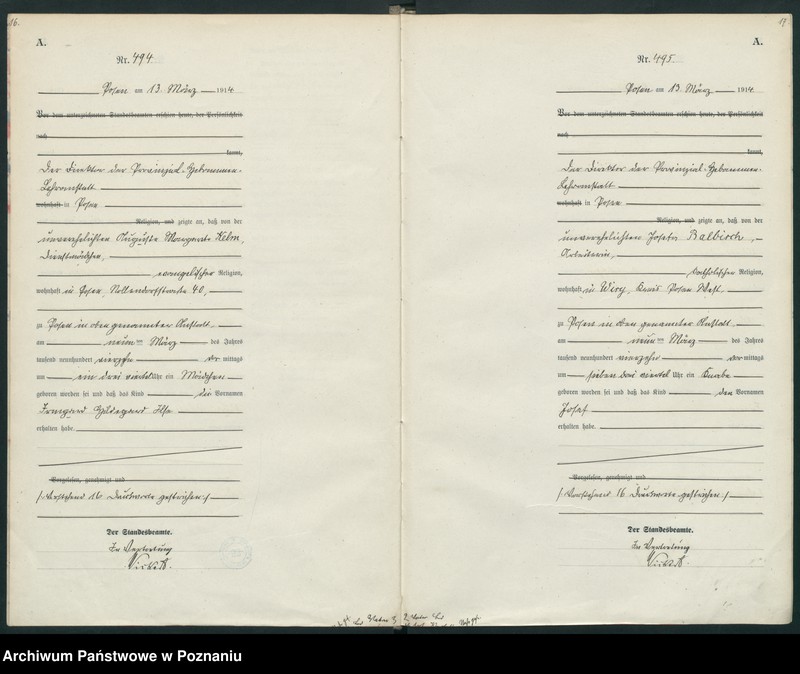 16.
A.
Nr. 494
Posen am 13. März 1914
Vor dem unterzeichneten Standesbeamten erschien heute, der Persönlichkeit
nach
kannt,
Der Direktor der Provinzial-Hebammen-
Lehranstalt
wohnhaft in Posen
Religion, und zeigte an, daß von der
unverehelichten Auguste Margarete
Dienstmädchen,
evangelischer Religion,
wohnhaft in Posen, Nollendorfstraße 40,
zu Posen in oben genannter Anstalt,
am neunten März des Jahres
tausend neunhundert vierzehn Vormittags
um ein drei viertel Uhr ein Mädchen
geboren worden sei und daß das Kind die Vornamen
Irmgard Hildegard Ilse
erhalten habe.
Vorgelesen, genehmigt und
/: Vorstehend 16 Druckworte gestrichen :/
Der Standesbeamte.
In Vertretung
17.
A.
Nr. 495
Posen am 13. März 1914
Vor dem unterzeichneten Standesbeamten erschien heute, der Persönlichkeit
nach
kannt,
Der Direktor der Provinzial-Hebammen-
Lehranstalt
wohnhaft in Posen
Religion, und zeigte an, daß von der
unverehelichten Josefa Balbisch,
Arbeiterin,
katholischer Religion,
wohnhaft in Wiry, Kreis Posen West,
zu Posen in oben genannter Anstalt,
am neunten März des Jahres
tausend neunhundert vierzehn mittags
um sieben drei viertel Uhr ein Knabe
geboren worden sei und daß das Kind den Vornamen
Josef
erhalten habe.
Vorgelesen, genehmigt und
/: Vorstehend 16 Druckworte gestrichen :/
Der Standesbeamte.
In Vertretung
Archiwum Państwowe w Poznaniu